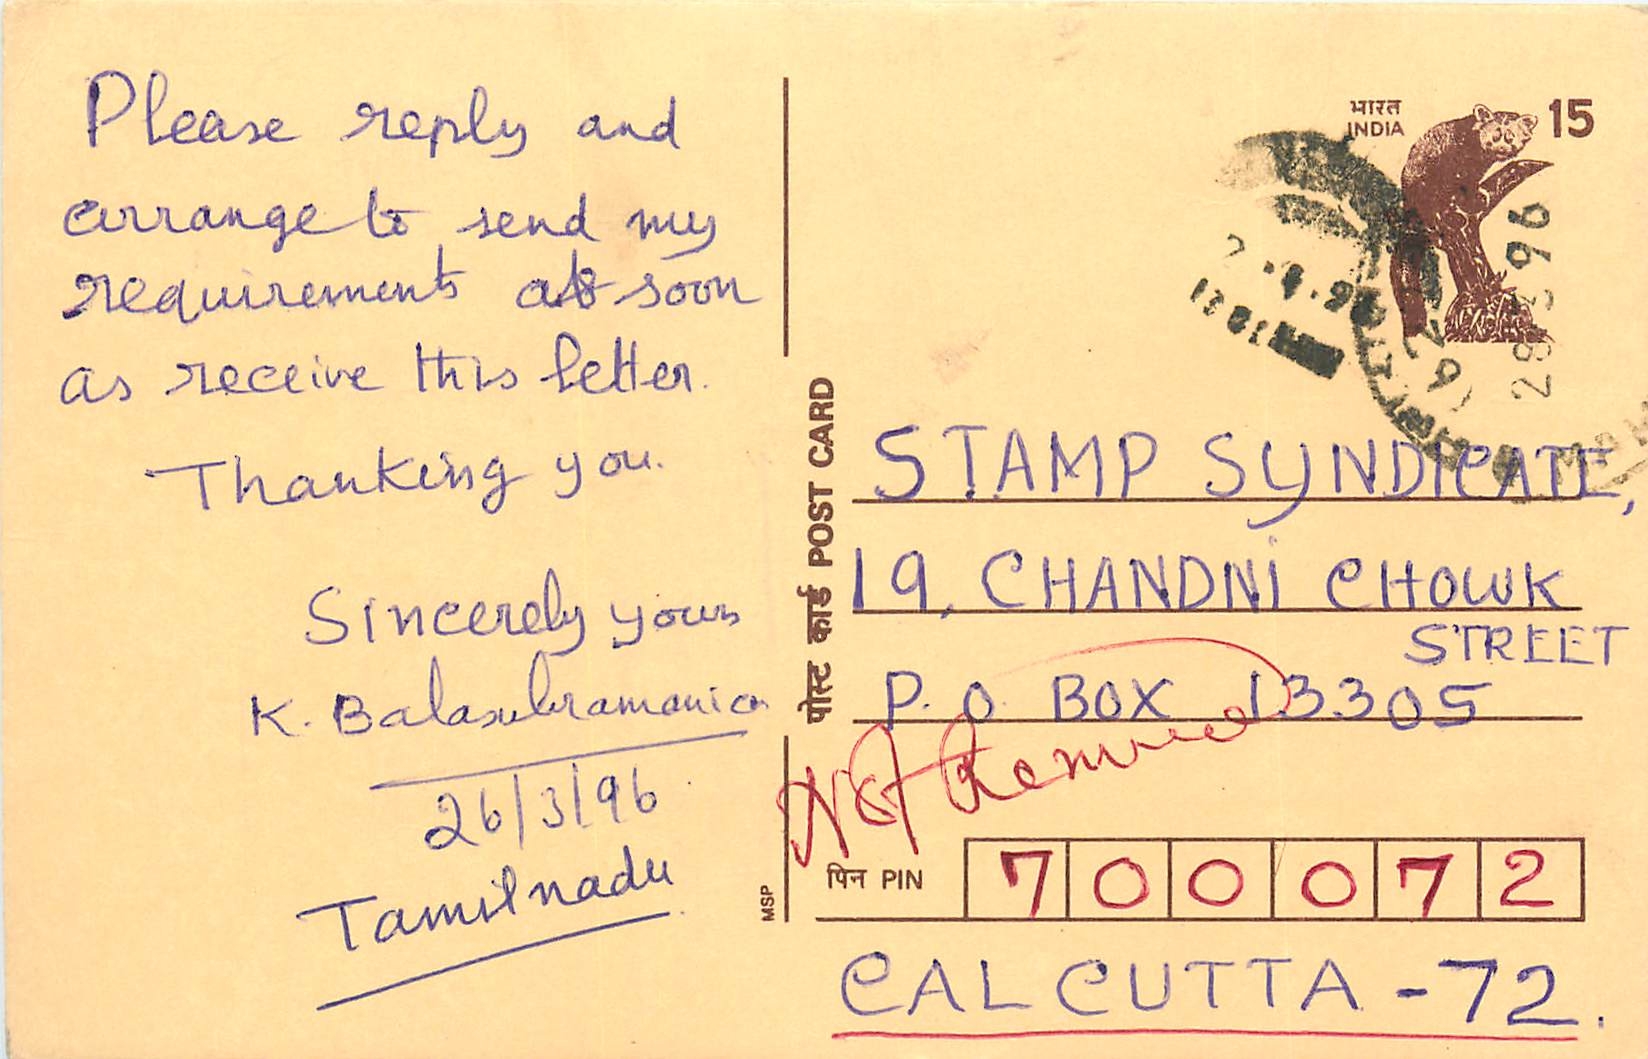 Please reply and
arrange to send my
requirements as soon
as receive this letter.
Thanking you.
Sincerely yours
K. Balasubramanian
26/3/96
Tamilnadu
भारत
INDIA
15
28 3 96
पोस्ट कार्ड POST CARD
STAMP SYNDICATE,
19, CHANDNI CHOWK
STREET
P.O BOX 13305
Not
पिन PIN
700072
CALCUTTA -72.
MSP